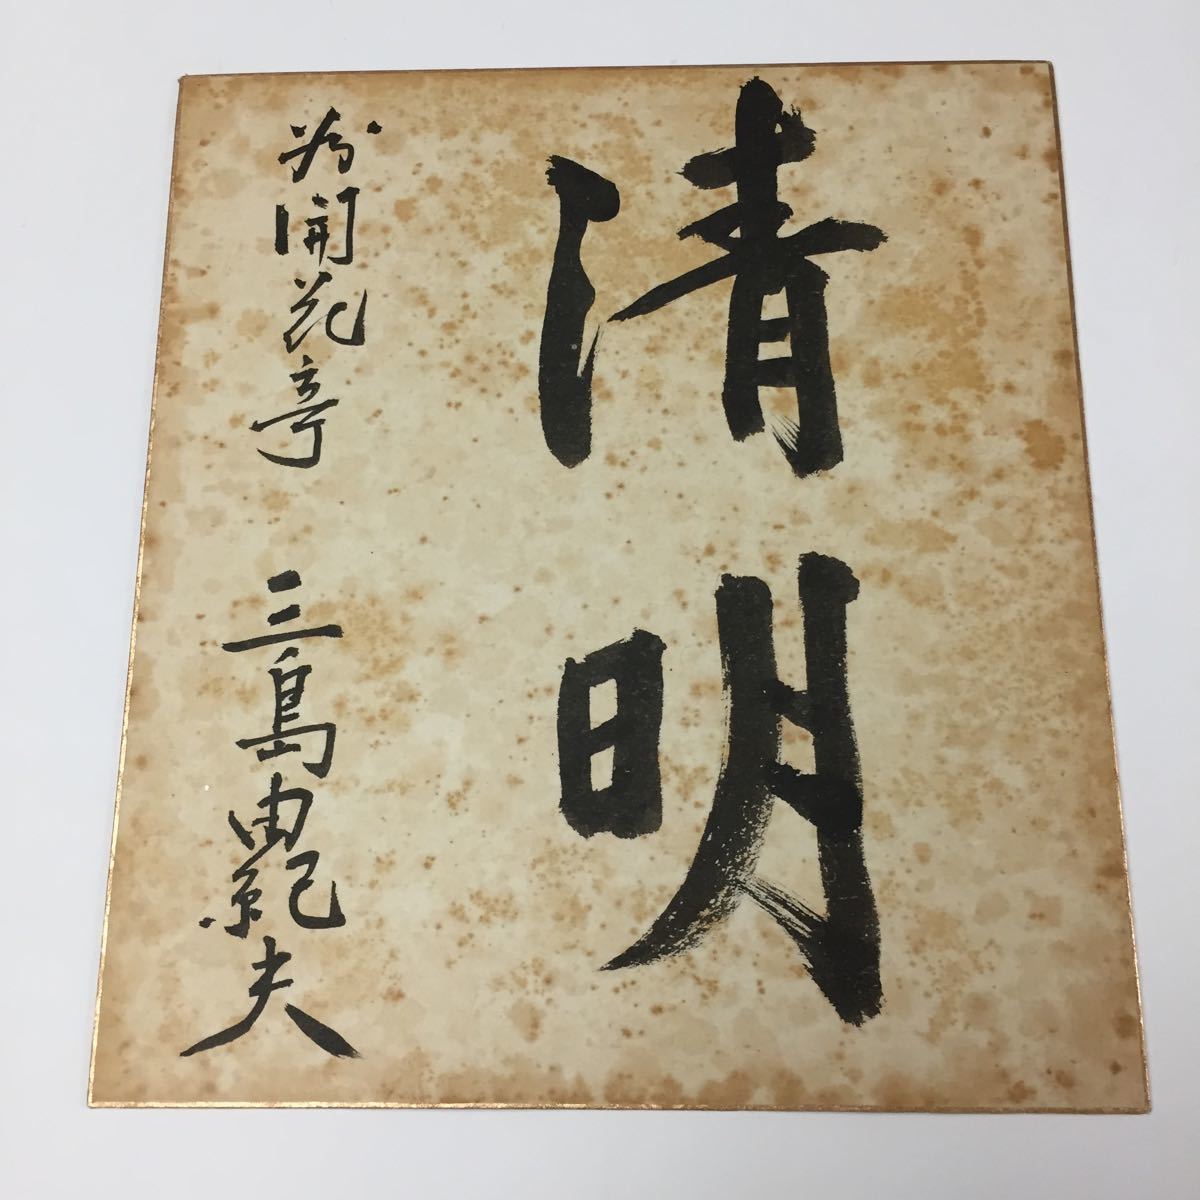 清明
為開花亭
三島由紀夫